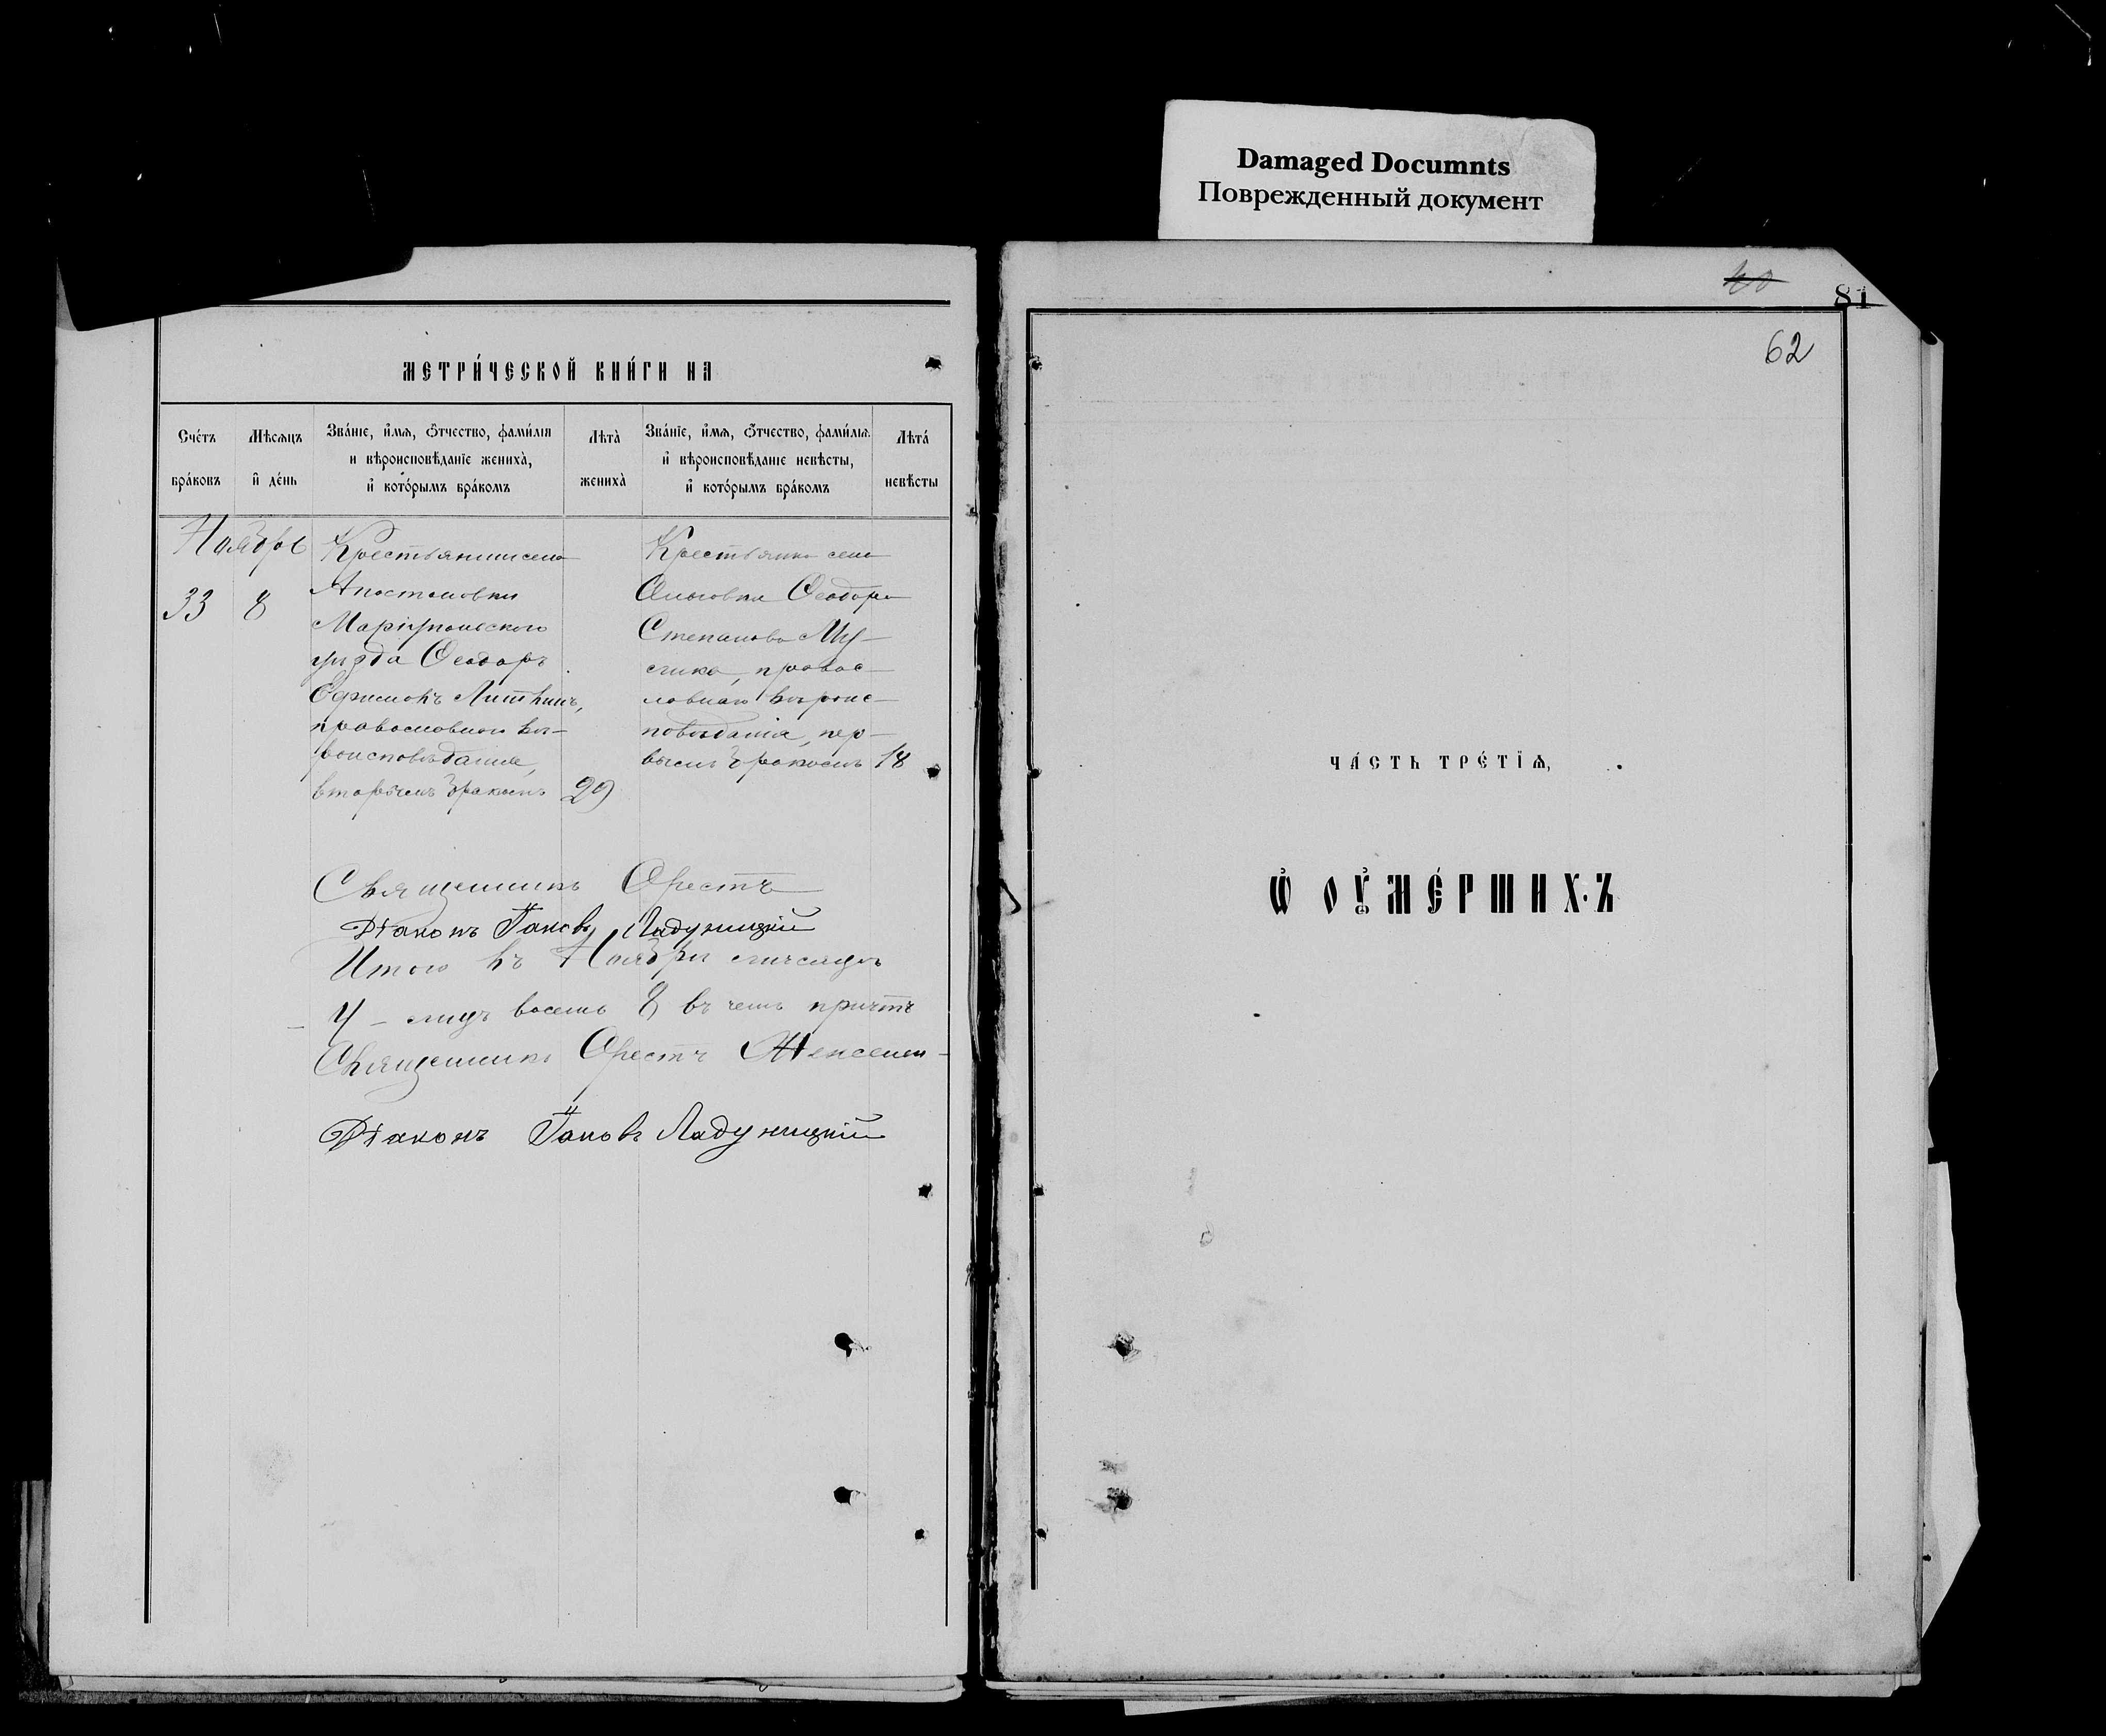 Damaged Documnts
Поврежденный документ
81
62
МЕТРИ́ЧЕСКОЙ КНИ́ГИ НА
Сче́тъ бра́ковъ
Мѣсѧцъ и҆ де́нь
Зва́нїе, и҆́мѧ, ѻ҆́тчество, фами́лїѧ
и вѣроисповѣ́данїе жениха̀,
и҆ кото́рымъ бра́комъ
Лѣта̀ жениха̀
Зва́нїе, и҆́мѧ, ѻ҆́тчество, фами́лїѧ.
и҆ вѣроисповѣ́данїе невѣ́сты,
и҆ кото́рымъ бра́комъ
Лѣта́ невѣ́сты
Ноябрь
33 8
Крестьянинъ села
Апостоловки
Маріупольскаго
уѣзда Ѳеодоръ
православнаго вѣ-
роисповѣданія,
вторымъ бракомъ 29
Крестьянка села
Ѳеодора
Степанова
правос-
лавнаго вѣроис-
повѣданія, пер-
вымъ бракомъ 18
Священникъ Орестъ
Діаконъ Іаковъ Ладухицкій
Итого въ Ноябрѣ мѣсяцѣ
восемь 8 въ чемъ
Священникъ Орестъ
Діаконъ Іаковъ Ладухицкій
ЧА́СТЬ ТРЕ́ТЇѦ,
Ѡ҆ ОУ҆МЕ́РШИХЪ